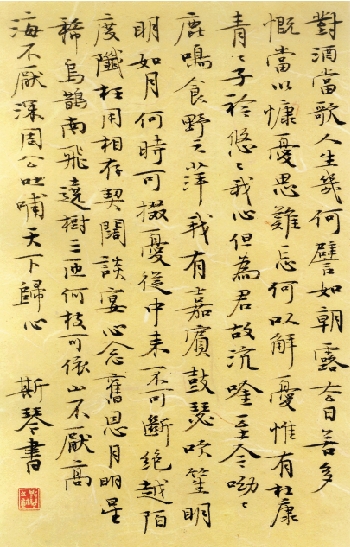 對酒當歌人生幾何譬如朝露去日苦多
慨當以慷憂思難忘何以解憂惟有杜康
青々子衿悠々我心但為君故沉唫至今呦々
鹿鳴食野之苹我有嘉賓鼓瑟吹笙明
明如月何時可掇憂從中來不可斷絕越陌
度枉用相存契闊談宴心念舊恩月明星
稀烏鵲南飛遶樹三匝何枝可依山不厭高
海不厭深周公吐哺天下歸心
斯琴書